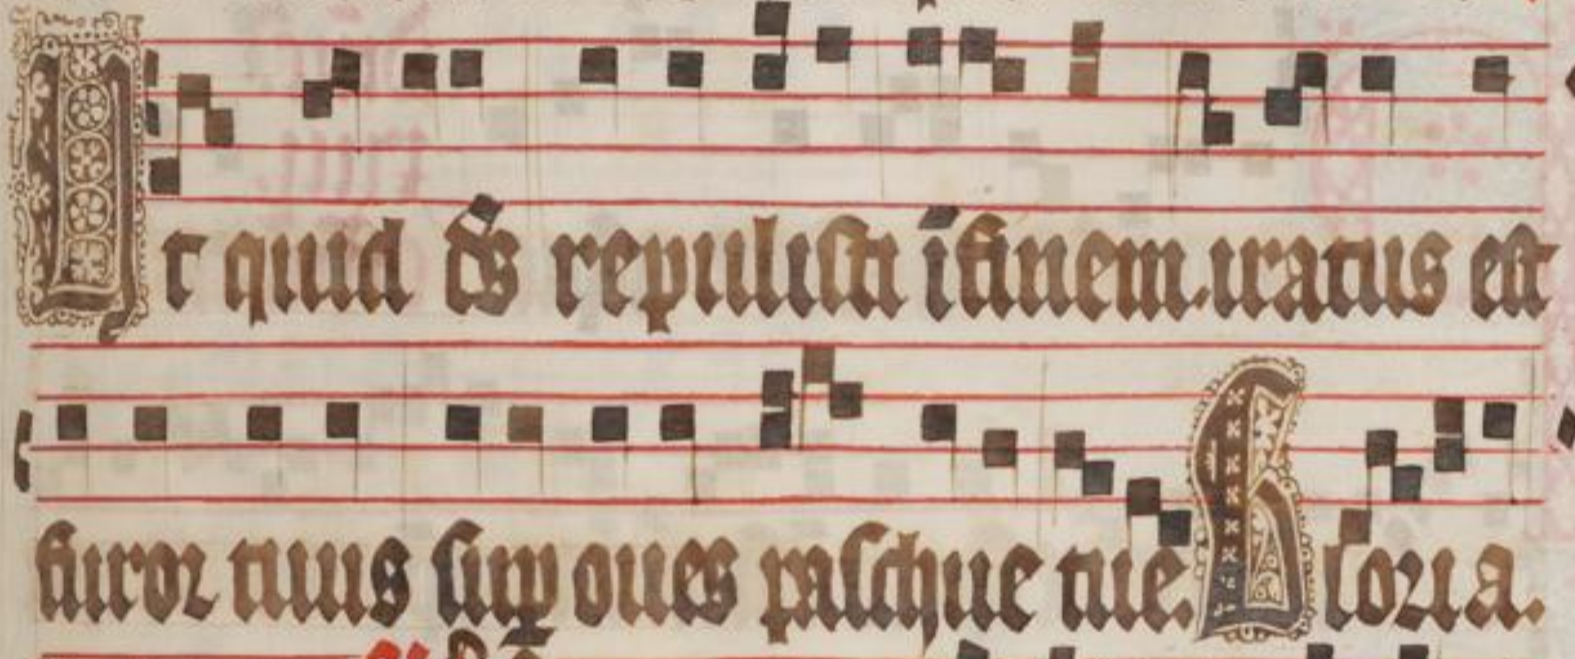 Ut quid ds repulisti ifinem. iratus est
furor tuus sup oues paschue tue. Gloria.